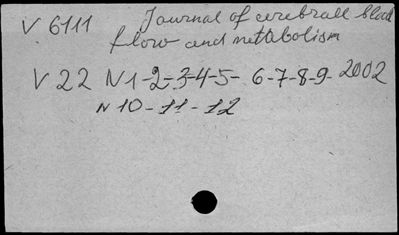 V 6111 Journal of cerebrall blood
flow and metabolism
V 22 N 1-2-3-4-5- 6-7-8-9- 2002
N 10-11-12